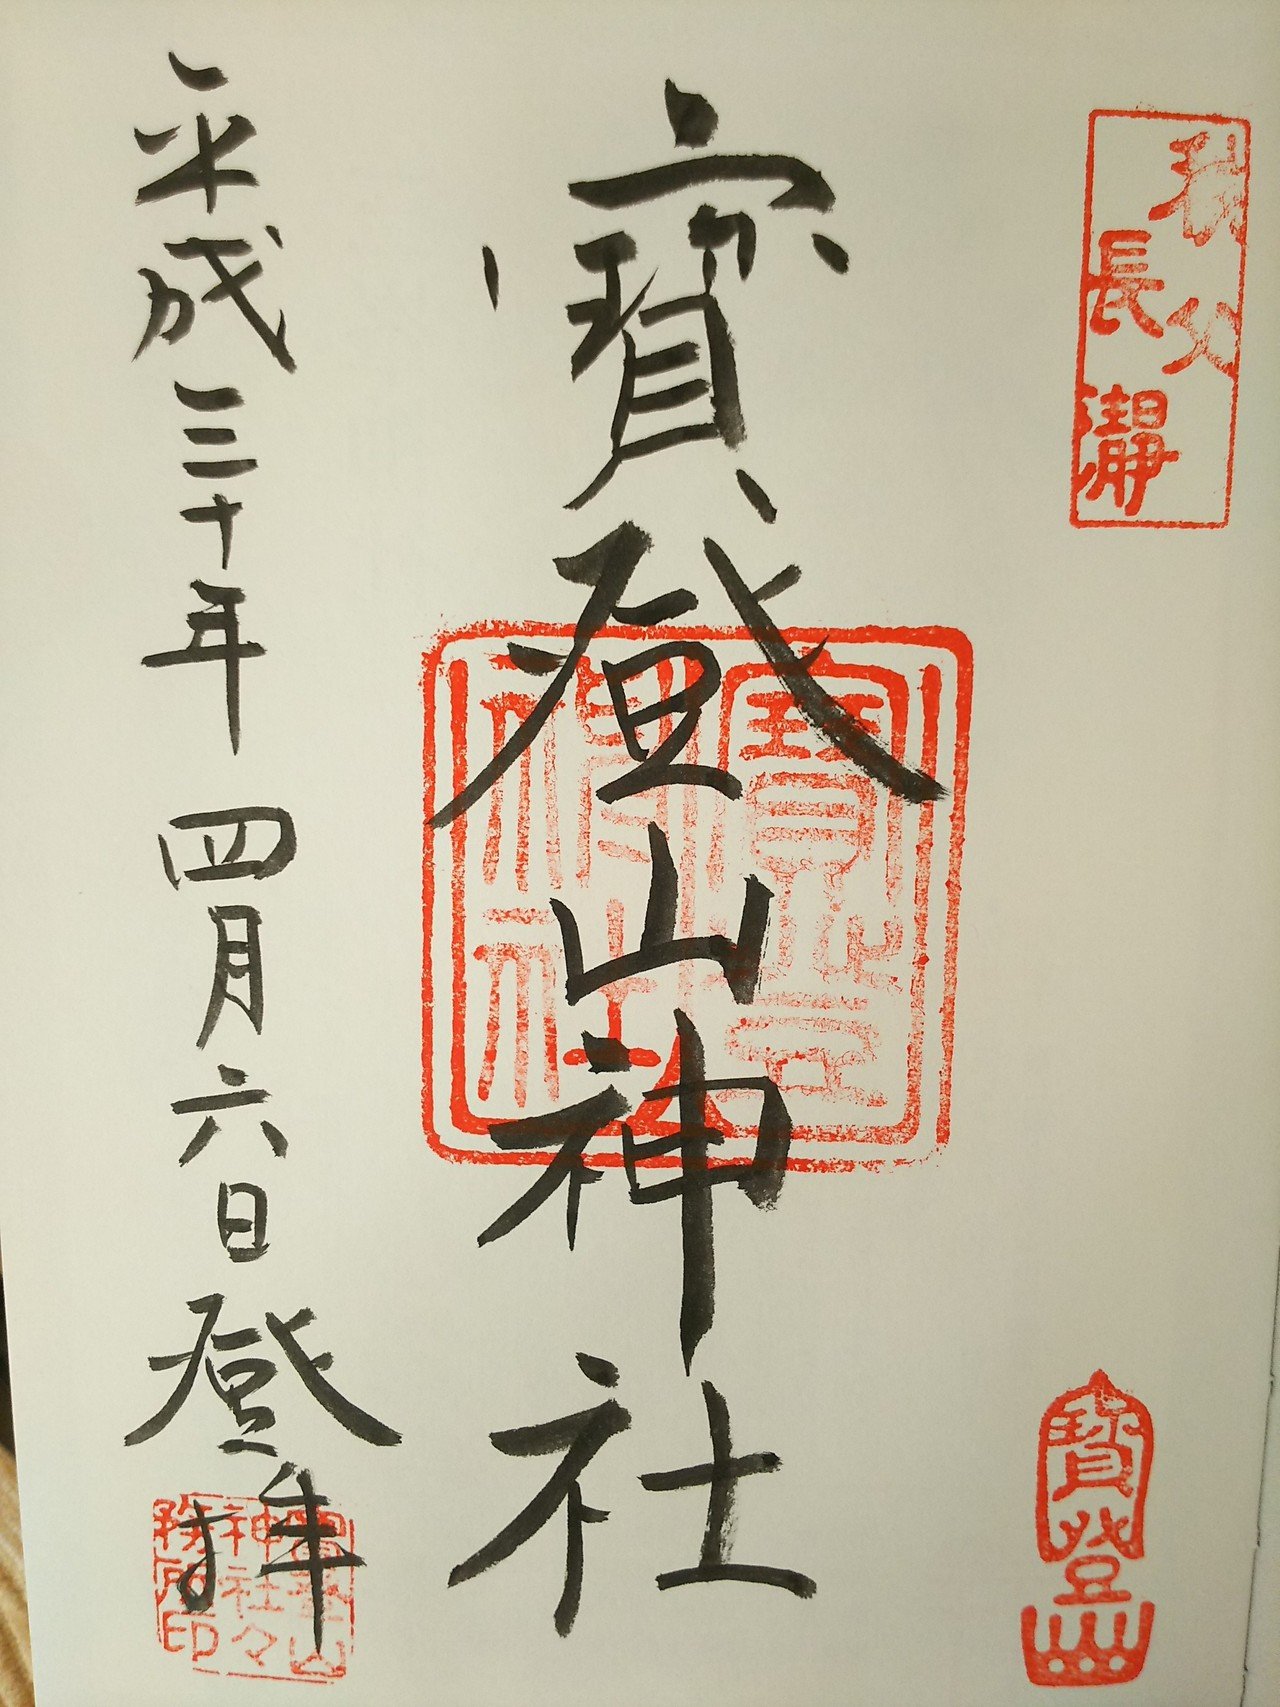 秩父
長瀞
寶登山
寶登山神社
寶登山
神社
平成三十年四月六日登拝
寶登山
神社々
務所印